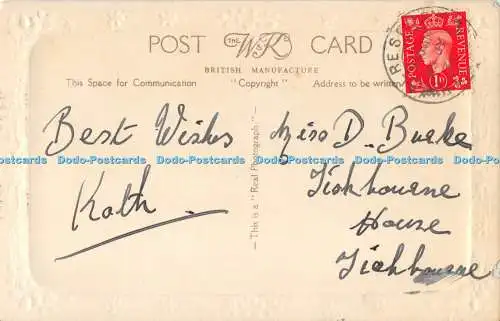 POST THE W&KS CARD
BRITISH MANUFACTURE
This Space for Communication "Copyright" Address to be written
POSTAGE REVENUE
1D
PRES
Best Wishes
Kath
This is a "Real Photograph"
Miss D. Burke
Tichbourne
House
Tichbourne
Dodo-Postcards Dodo-Postcards Dodo-Postcards Dodo-Postcards Dodo-Postcards